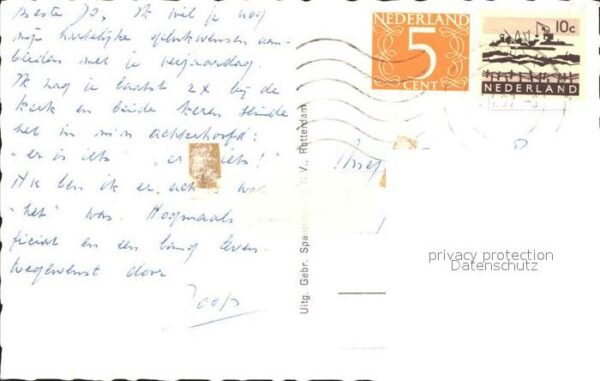 Beste Jo, Ik wil je nog
mijn hartelijke gelukwensen aan-
bieden met je verjaardag.
Ik zag je laatst 2x bij de
kerk en beide keren
het in m'n achterhoofd:
"er is iets" "er iets!"
Nu ben ik er wat
"het" was. Nogmaals
en een lang leven
toegewenst door
Joop
Uitg. Gebr. V., Rotterdam
NEDERLAND
5
CENT
10c
NEDERLAND
privacy protection
Datenschutz